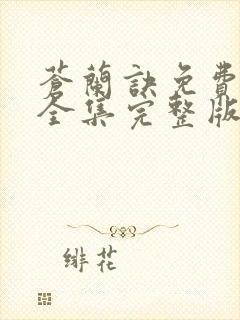 蒼蘭訣免費
全集完整版
緋花